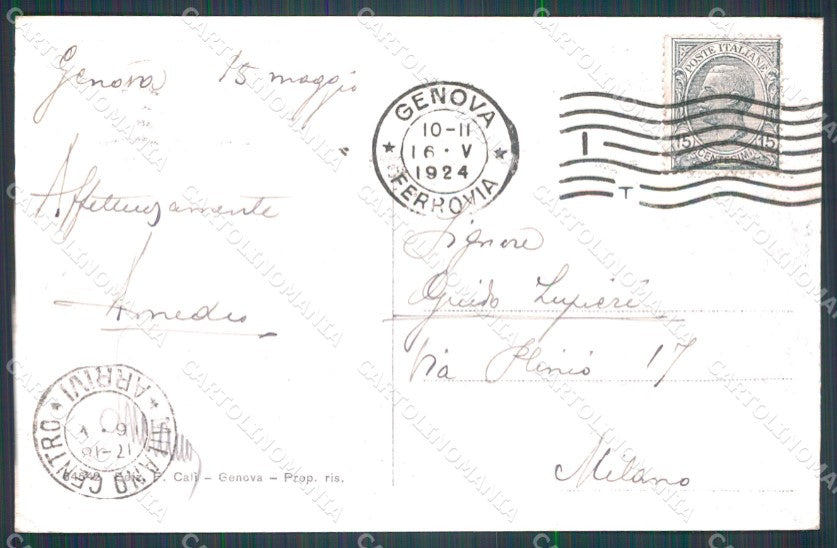 Genova 15 maggio
Affettuosamente
Amedeo
GENOVA
10-11
16 · V
1924
FERROVIA
POSTE ITALIANE
15 15
CENTESIMI
Signore
Guido Lupieri
Via Plinio 17
Milano
MILANO CENTRO
ARRIVI
17-18
Ediz. F. Cali – Genova – Prop. ris.
CARTOLINOMANIA